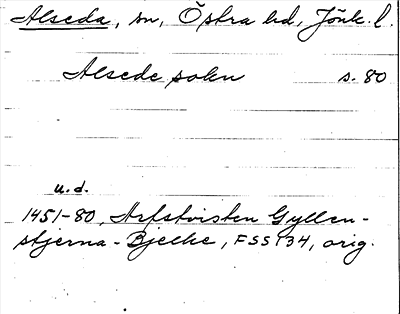 Alseda, sn, Östra hd, Jönk. l.
Alsede sokn s. 80
u.d.
1451-80, Arfstvisten Gyllen-
stjerna - Bjelke, FSS 134, orig.